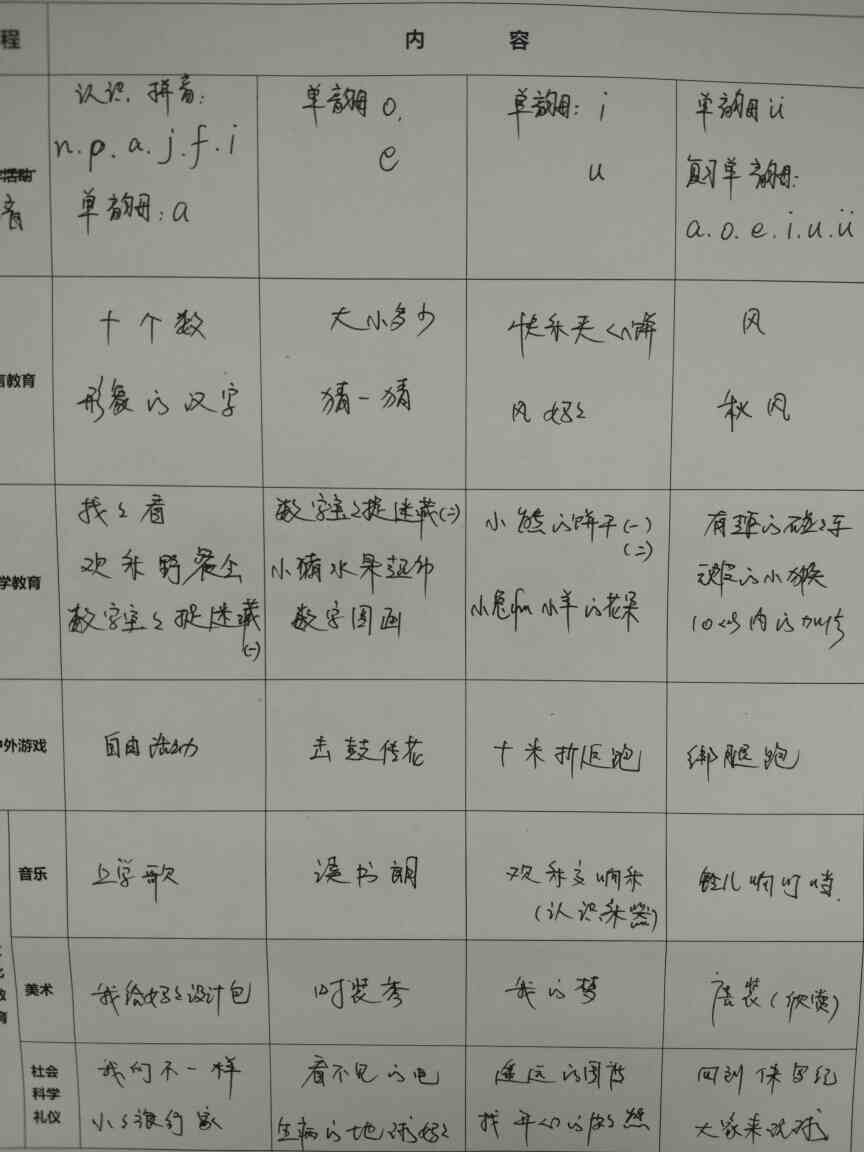 程
内 容
认识、拼音:
n.p.a.j.f.i
单韵母:a
单韵母 o,
e
单韵母: i
u
单韵母 ü
复习单韵母:
a.o.e.i.u.ü
活动
言教育
十个数
形象的汉字
大小多少
猜一猜
风
秋风
学教育
找ミ看
欢乐野餐会
数字宝ミ捉迷藏
(一)
数字宝ミ捉迷藏(二)
小猪水果超市
数字图画
小熊的饼干(一)
(二)
小兔和小羊的花朵
有趣的碰ミ车
的小猴
10以内的加
户外游戏
自由活动
击鼓传花
十米折返跑
绑腿跑
音乐
上学歌
读书朗
欢乐交响乐
(认识乐器)
铃儿响叮当
美术
我给妈ミ设计包
时装秀
我的梦
唐装(欣赏)
社会
科学
礼仪
我们不一样
小ミ银行家
看不见的电
生病的地球妈ミ
遥远的
找开心的
回到侏罗纪
大家来玩球